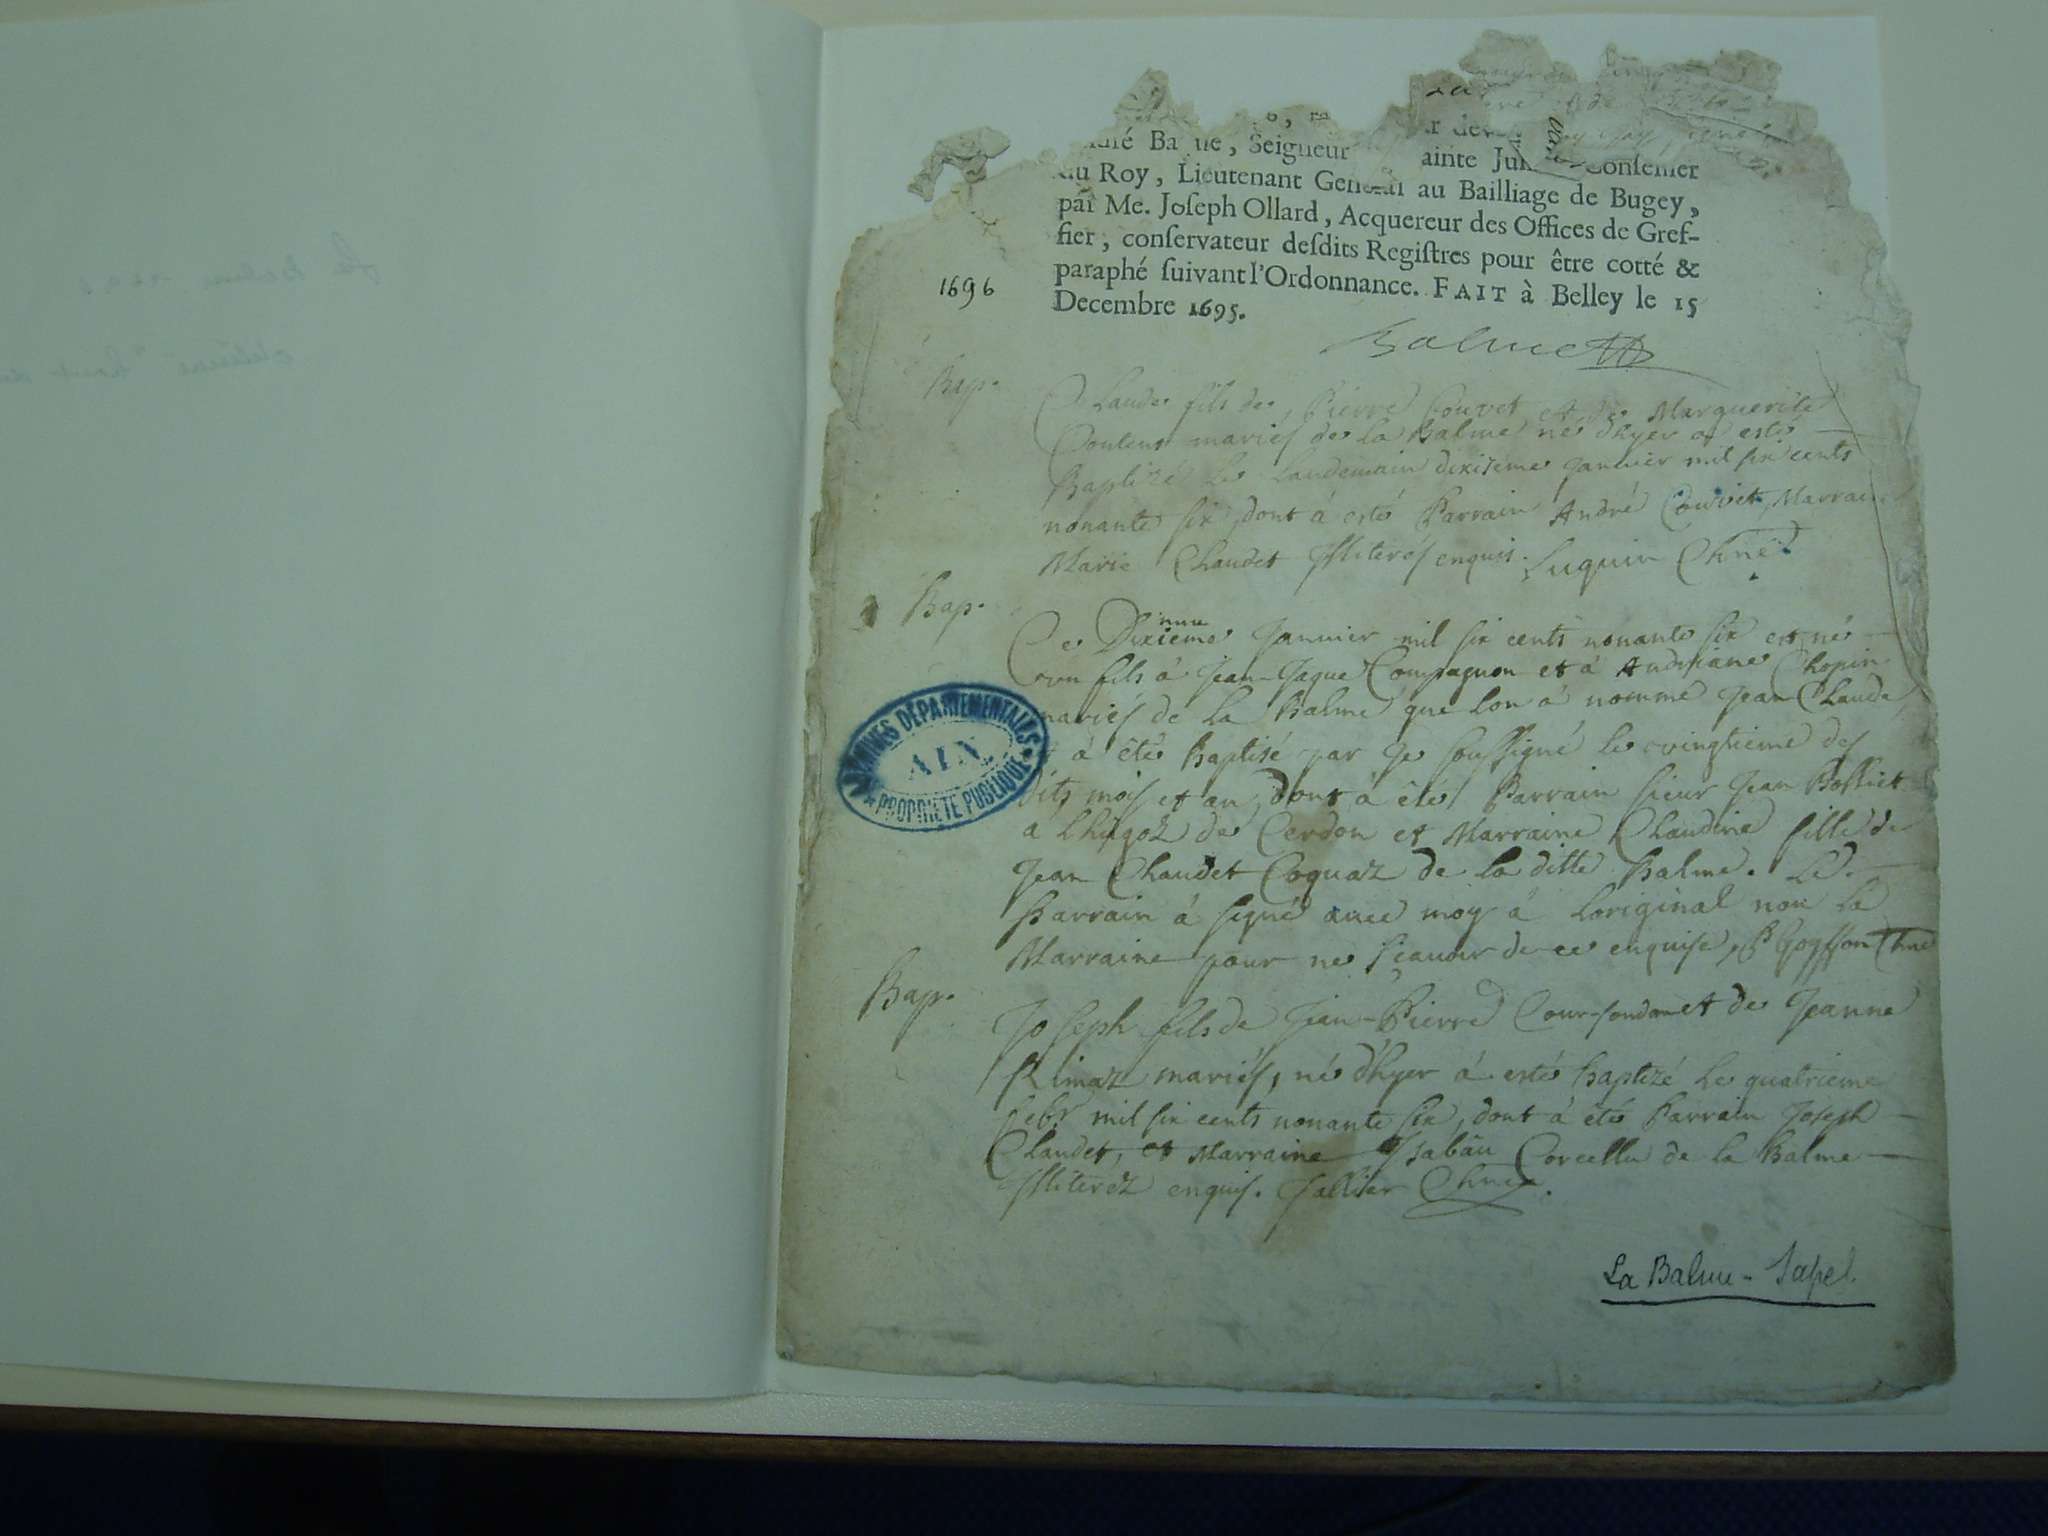 Seigneur ainte Conseiller
du Roy, Lieutenant General au Bailliage de Bugey,
par Me. Joſeph Ollard, Acquereur des Offices de Gref-
fier, conſervateur deſdits Regiſtres pour être cotté &
paraphé ſuivant l'Ordonnance. FAIT à Belley le 15
Decembre 1695.
1696
Balme
Bap.
Claude fils de Pierre Couvet et de Marguerite
mariés de la Balme né d'hyer a esté
Baptizé le landemain dixiéme Janvier mil six cents
nonante six, dont à esté Parrain André Couvet, Marraine
Marie Claudet Illiterés enquis. Luquin
Bap.
Ce Dixieme Janvier mil six cents nonante six est né
un fils à Jean-Jaque Compagnon et à Andriane Chopin
mariés de la Balme que lon à nommé Jean Claude
à êté Baptisé par Je soussigné le vingtieme des
dits mois et an, dont à êté Parrain sieur Jean
de Cerdon et Marraine Claudine fille de
Jean Claudet Coquaz de la ditte Balme. Le
Parrain à signé avec moy à loriginal non la
Marraine pour ne sçavoir de ce enquise,
Bap.
Joseph fils de Jean-Pierre et de Jeanne
Rimaz mariés, né d'hyer à esté baptizé le quatrieme
febr. mil six cents nonante six, dont à êté Parrain Joseph
Claudet, et Marraine Isabau de la Balme
Illiterez enquis.
ARCHIVES DÉPARTEMENTALES
AIN
PROPRIETE PUBLIQUE
La Balme-Sapel